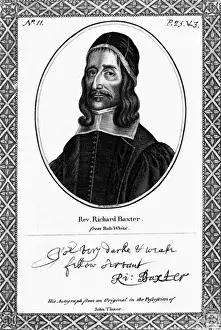 No. 11.
P. 25. V. 3.
Rev. Richard Baxter.
from Rob.t White.
Yor very darke & weak
fellow servant
Ri: Baxter
His Autograph from an Original in the Possession of
John Thane.